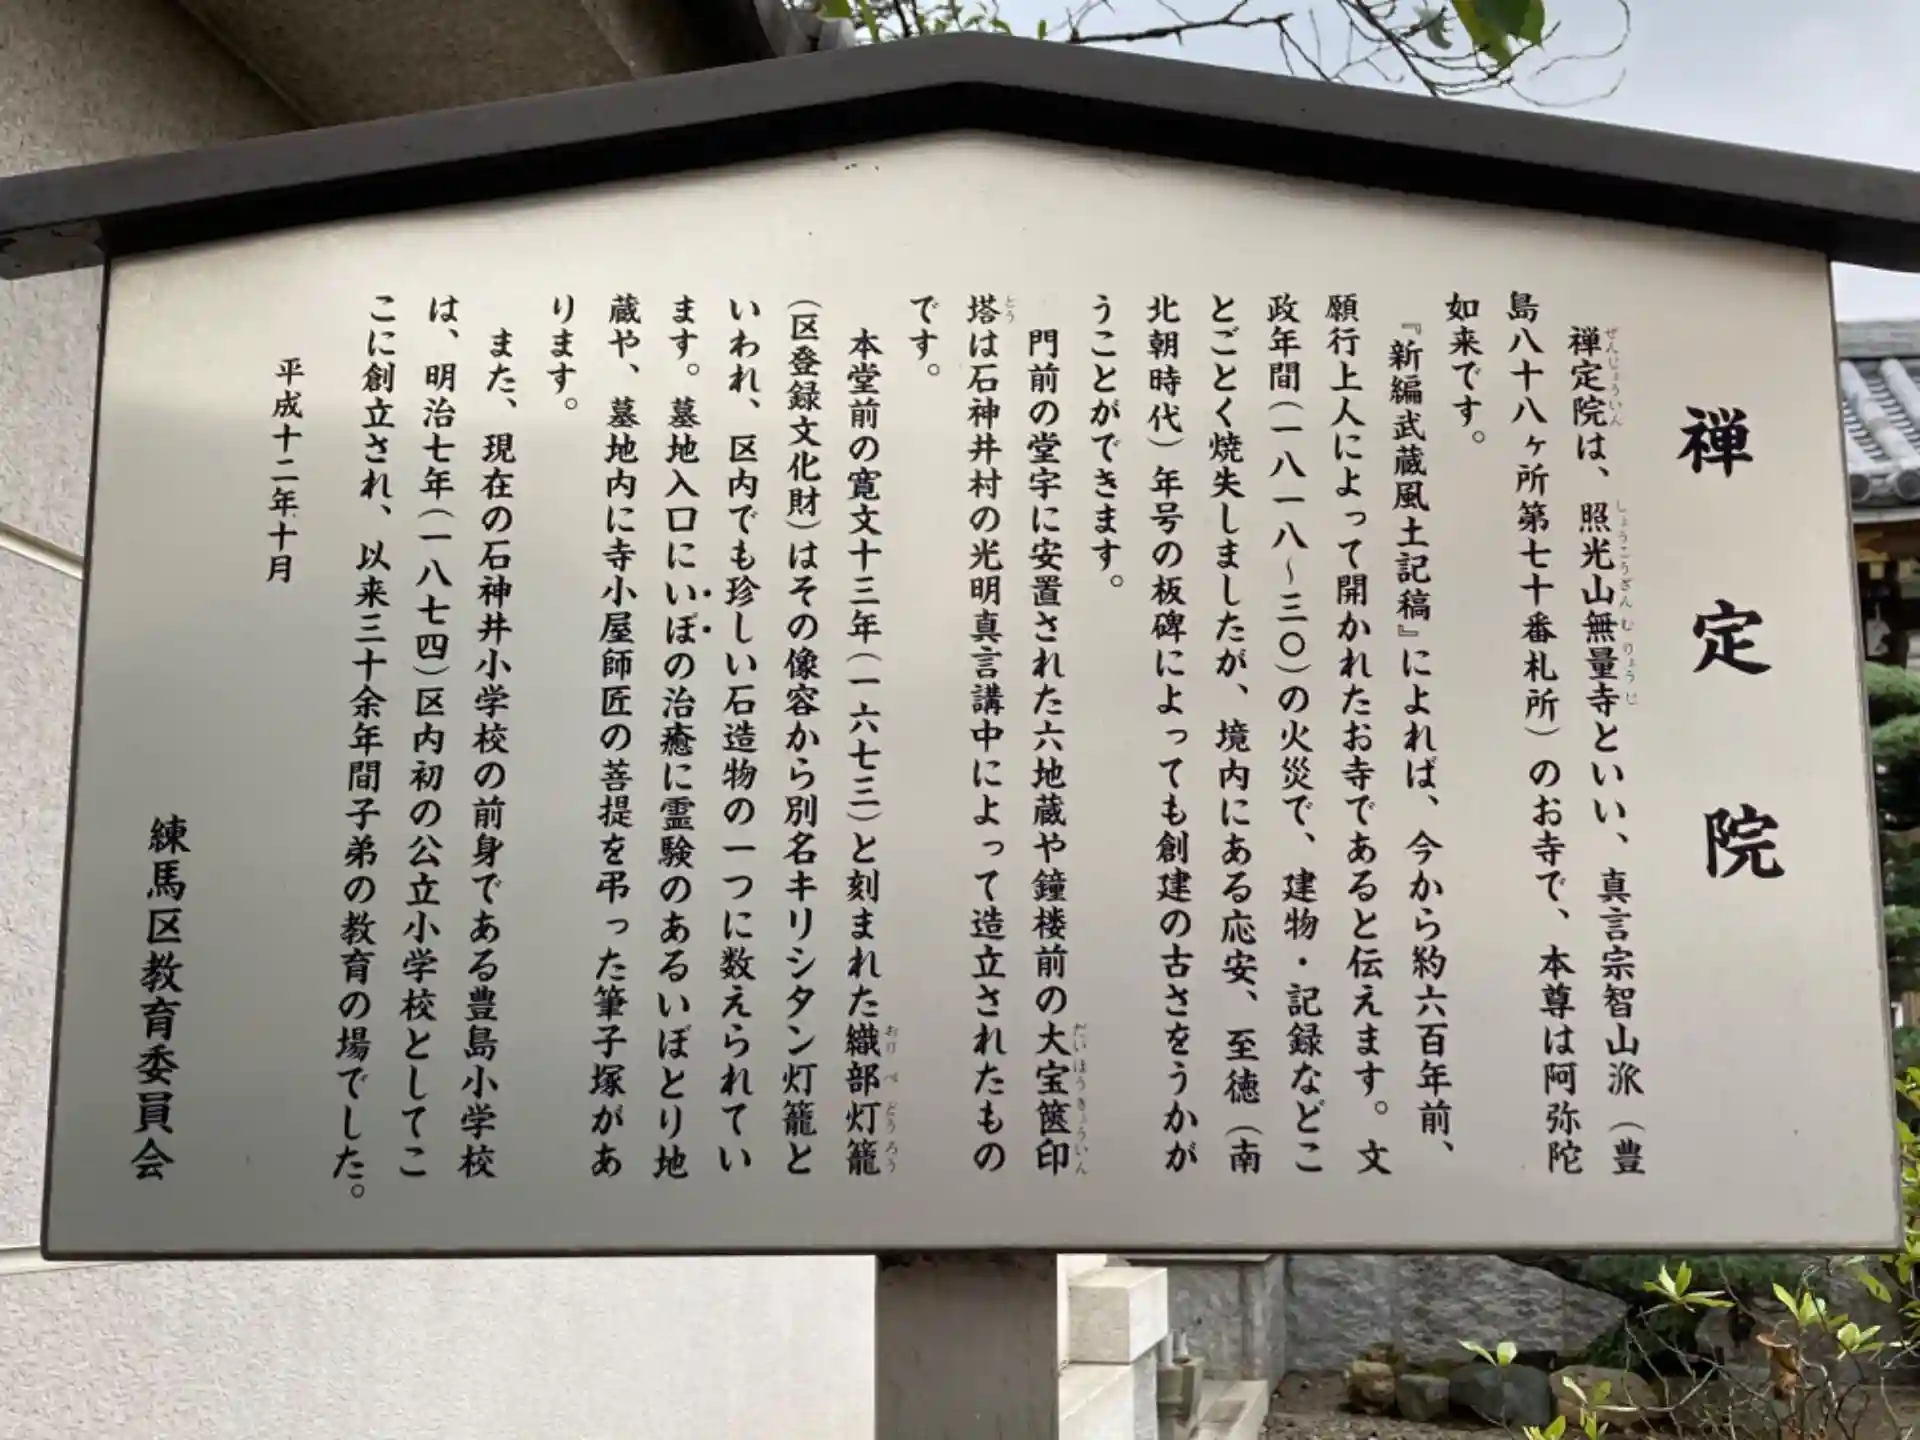 禅定院
禅定院は、照光山無量寺といい、真言宗智山派（豊
島八十八ヶ所第七十番札所）のお寺で、本尊は阿弥陀
如来です。
『新編武蔵風土記稿』によれば、今から約六百年前、
願行上人によって開かれたお寺であると伝えます。文
政年間（一八一八～三〇）の火災で、建物・記録などこ
とごとく焼失しましたが、境内にある応安、至徳（南
北朝時代）年号の板碑によっても創建の古さをうかが
うことができます。
門前の堂宇に安置された六地蔵や鐘楼前の大宝篋印
塔は石神井村の光明真言講中によって造立されたもの
です。
本堂前の寛文十三年（一六七三）と刻まれた織部灯籠
（区登録文化財）はその像容から別名キリシタン灯籠と
いわれ、区内でも珍しい石造物の一つに数えられてい
ます。墓地入口にいぼの治癒に霊験のあるいぼとり地
蔵や、墓地内に寺小屋師匠の菩提を弔った筆子塚があ
ります。
また、現在の石神井小学校の前身である豊島小学校
は、明治七年（一八七四）区内初の公立小学校としてこ
こに創立され、以来三十余年間子弟の教育の場でした。
平成十二年十月
練馬区教育委員会